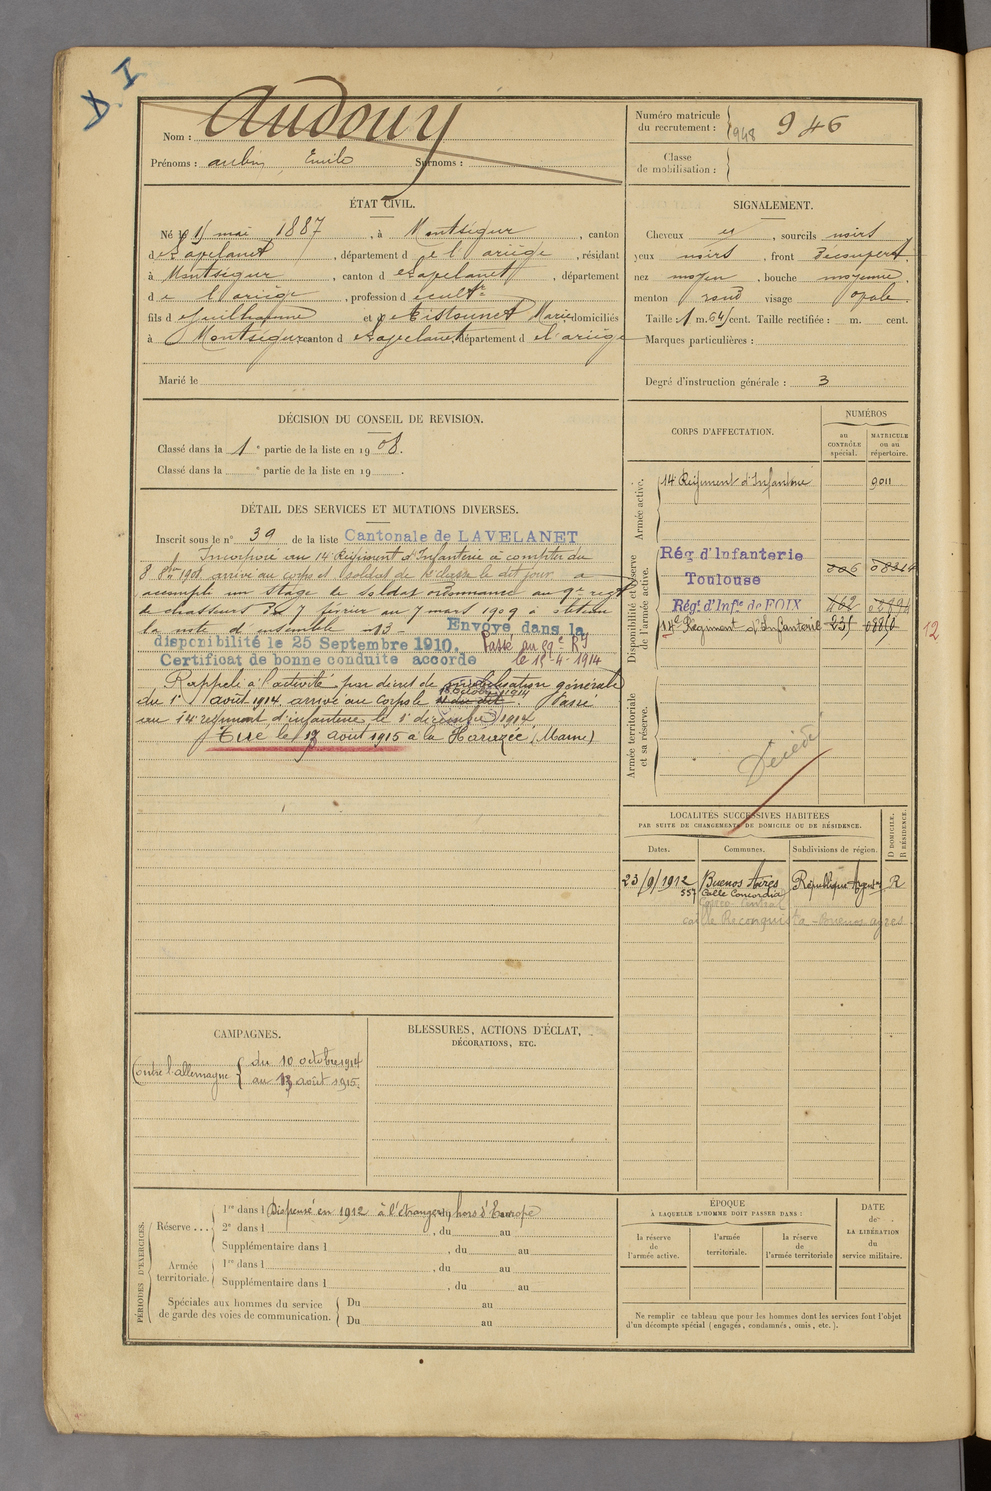 D. I
Nom : Audouy
Prénoms : aubin Emile Surnoms :
Numéro matricule
du recrutement : 948 946
Classe
de mobilisation :
ÉTAT CIVIL.
Né le 15 mai 1887, à Montségur, canton
de Lavelanet, département de l'ariège, résidant
à Montségur, canton de Lavelanet, département
de l'ariège, profession de cultr
fils de Guilhaume et de Marie domiciliés
à Montségur canton de Lavelanet, département de l'ariège
Marié le
SIGNALEMENT.
Cheveux et, sourcils noirs
yeux noirs, front Découvert
nez moyen, bouche moyenne,
menton rond visage ovale.
Taille : 1 m. 64 cent. Taille rectifiée : m. cent.
Marques particulières :
Degré d'instruction générale : 3
DÉCISION DU CONSEIL DE REVISION.
Classé dans la 1e partie de la liste en 1908.
Classé dans la e partie de la liste en 19 .
DÉTAIL DES SERVICES ET MUTATIONS DIVERSES.
Inscrit sous le n° 39 de la liste Cantonale de LAVELANET
Incorporé au 14 Régiment d'Infanterie à compter du
8 8bre 1908 arrivé au corps et soldat de 2e classe le dit jour a
accompli un stage de soldat ordonnance au 9e regt
de chasseurs du 7 février au 7 mars 1909 a obtenu
la note d'ensemble 13 - Envoyé dans la
disponibilité le 25 Septembre 1910. Passé au 59e RI
Certificat de bonne conduite accordé le 15-4-1914
Rappelé à l'activité par décret de mobilisation générale
du 1er août 1914 arrivé au corps le 10 octobre 1914 et du dit. Passé
au 14 régiment d'infanterie le 1er décembre 1914.
Tué le 13 août 1915 à la Harazée (Marne)
CORPS D'AFFECTATION.
NUMÉROS
au
CONTRÔLE
spécial.
MATRICULE
ou au
répertoire.
Armée active.
14 Régiment d'Infanterie 9011
Disponibilité et réserve
de l'armée active.
Rég d'Infanterie
Toulouse
Rég. d'Infie de FOIX 462
14e Régiment d'Infanterie 12
Armée territoriale
et sa réserve.
Décédé
LOCALITÉS SUCCESSIVES HABITÉES
PAR SUITE DE CHANGEMENTS DE DOMICILE OU DE RÉSIDENCE.
Dates. Communes. Subdivisions de région. D DOMICILE. R RÉSIDENCE.
23/9/1912 Buenos Aires République Argene R
557 Calle Concordia
Correo Central
calle Reconquista - Buenos ayres
CAMPAGNES.
Contre l'allemagne { du 10 octobre 1914
au 13 août 1915.
BLESSURES, ACTIONS D'ÉCLAT,
DÉCORATIONS, ETC.
PÉRIODES D'EXERCICES.
Réserve ... 1re dans l Dispensé en 1912 à l'étranger, hors d'Europe
2e dans l , du au
Supplémentaire dans l , du au
Armée
territoriale. 1re dans l , du au
Supplémentaire dans l , du au
Spéciales aux hommes du service
de garde des voies de communication. Du au
Du au
ÉPOQUE
À LAQUELLE L'HOMME DOIT PASSER DANS :
la réserve
de
l'armée active.
l'armée
territoriale.
la réserve
de
l'armée territoriale
DATE
de
LA LIBÉRATION
du
service militaire.
Ne remplir ce tableau que pour les hommes dont les services font l'objet
d'un décompte spécial (engagés, condamnés, omis, etc.).